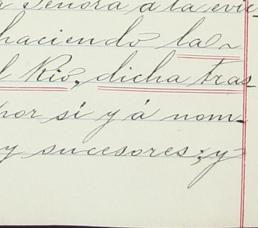 Señora á la evic
haciendo la
l Rio, dicha tras-
por sí y á nom-
y sucesores; y